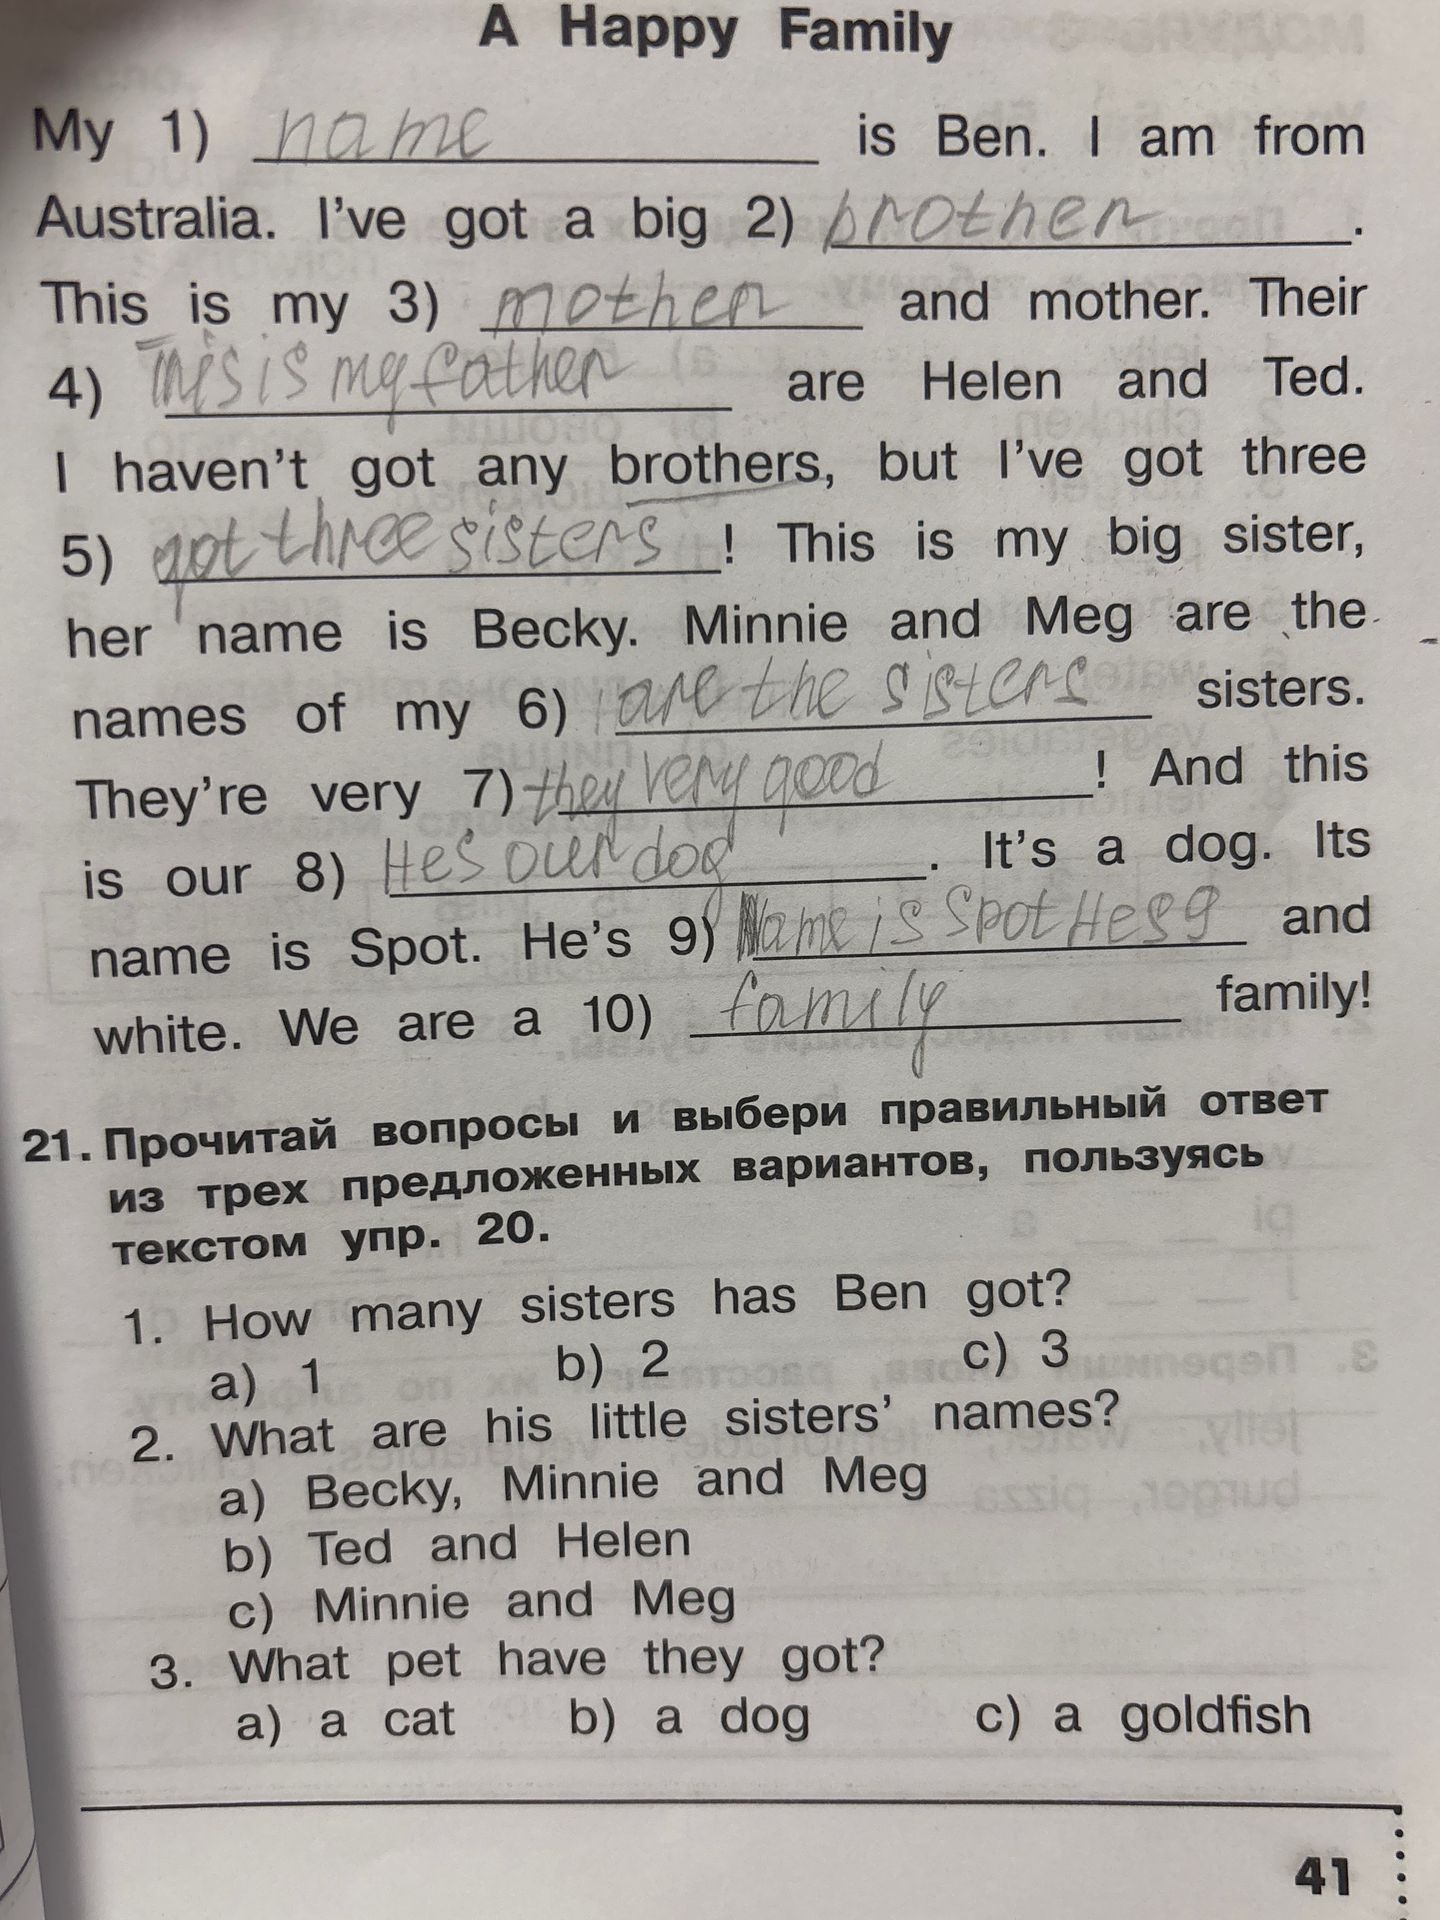 A Happy Family
My 1) name is Ben. I am from
Australia. I've got a big 2) brother.
This is my 3) mother and mother. Their
4) This is my father are Helen and Ted.
I haven't got any brothers, but I've got three
5) got three sisters! This is my big sister,
her name is Becky. Minnie and Meg are the
names of my 6) are the sisters sisters.
They're very 7) they very good! And this
is our 8) He's our dog. It's a dog. Its
name is Spot. He's 9) Name is Spot Hes 9 and
white. We are a 10) family family!
21. Прочитай вопросы и выбери правильный ответ
из трех предложенных вариантов, пользуясь
текстом упр. 20.
1. How many sisters has Ben got?
a) 1 b) 2 c) 3
2. What are his little sisters' names?
a) Becky, Minnie and Meg
b) Ted and Helen
c) Minnie and Meg
3. What pet have they got?
a) a cat b) a dog c) a goldfish
41